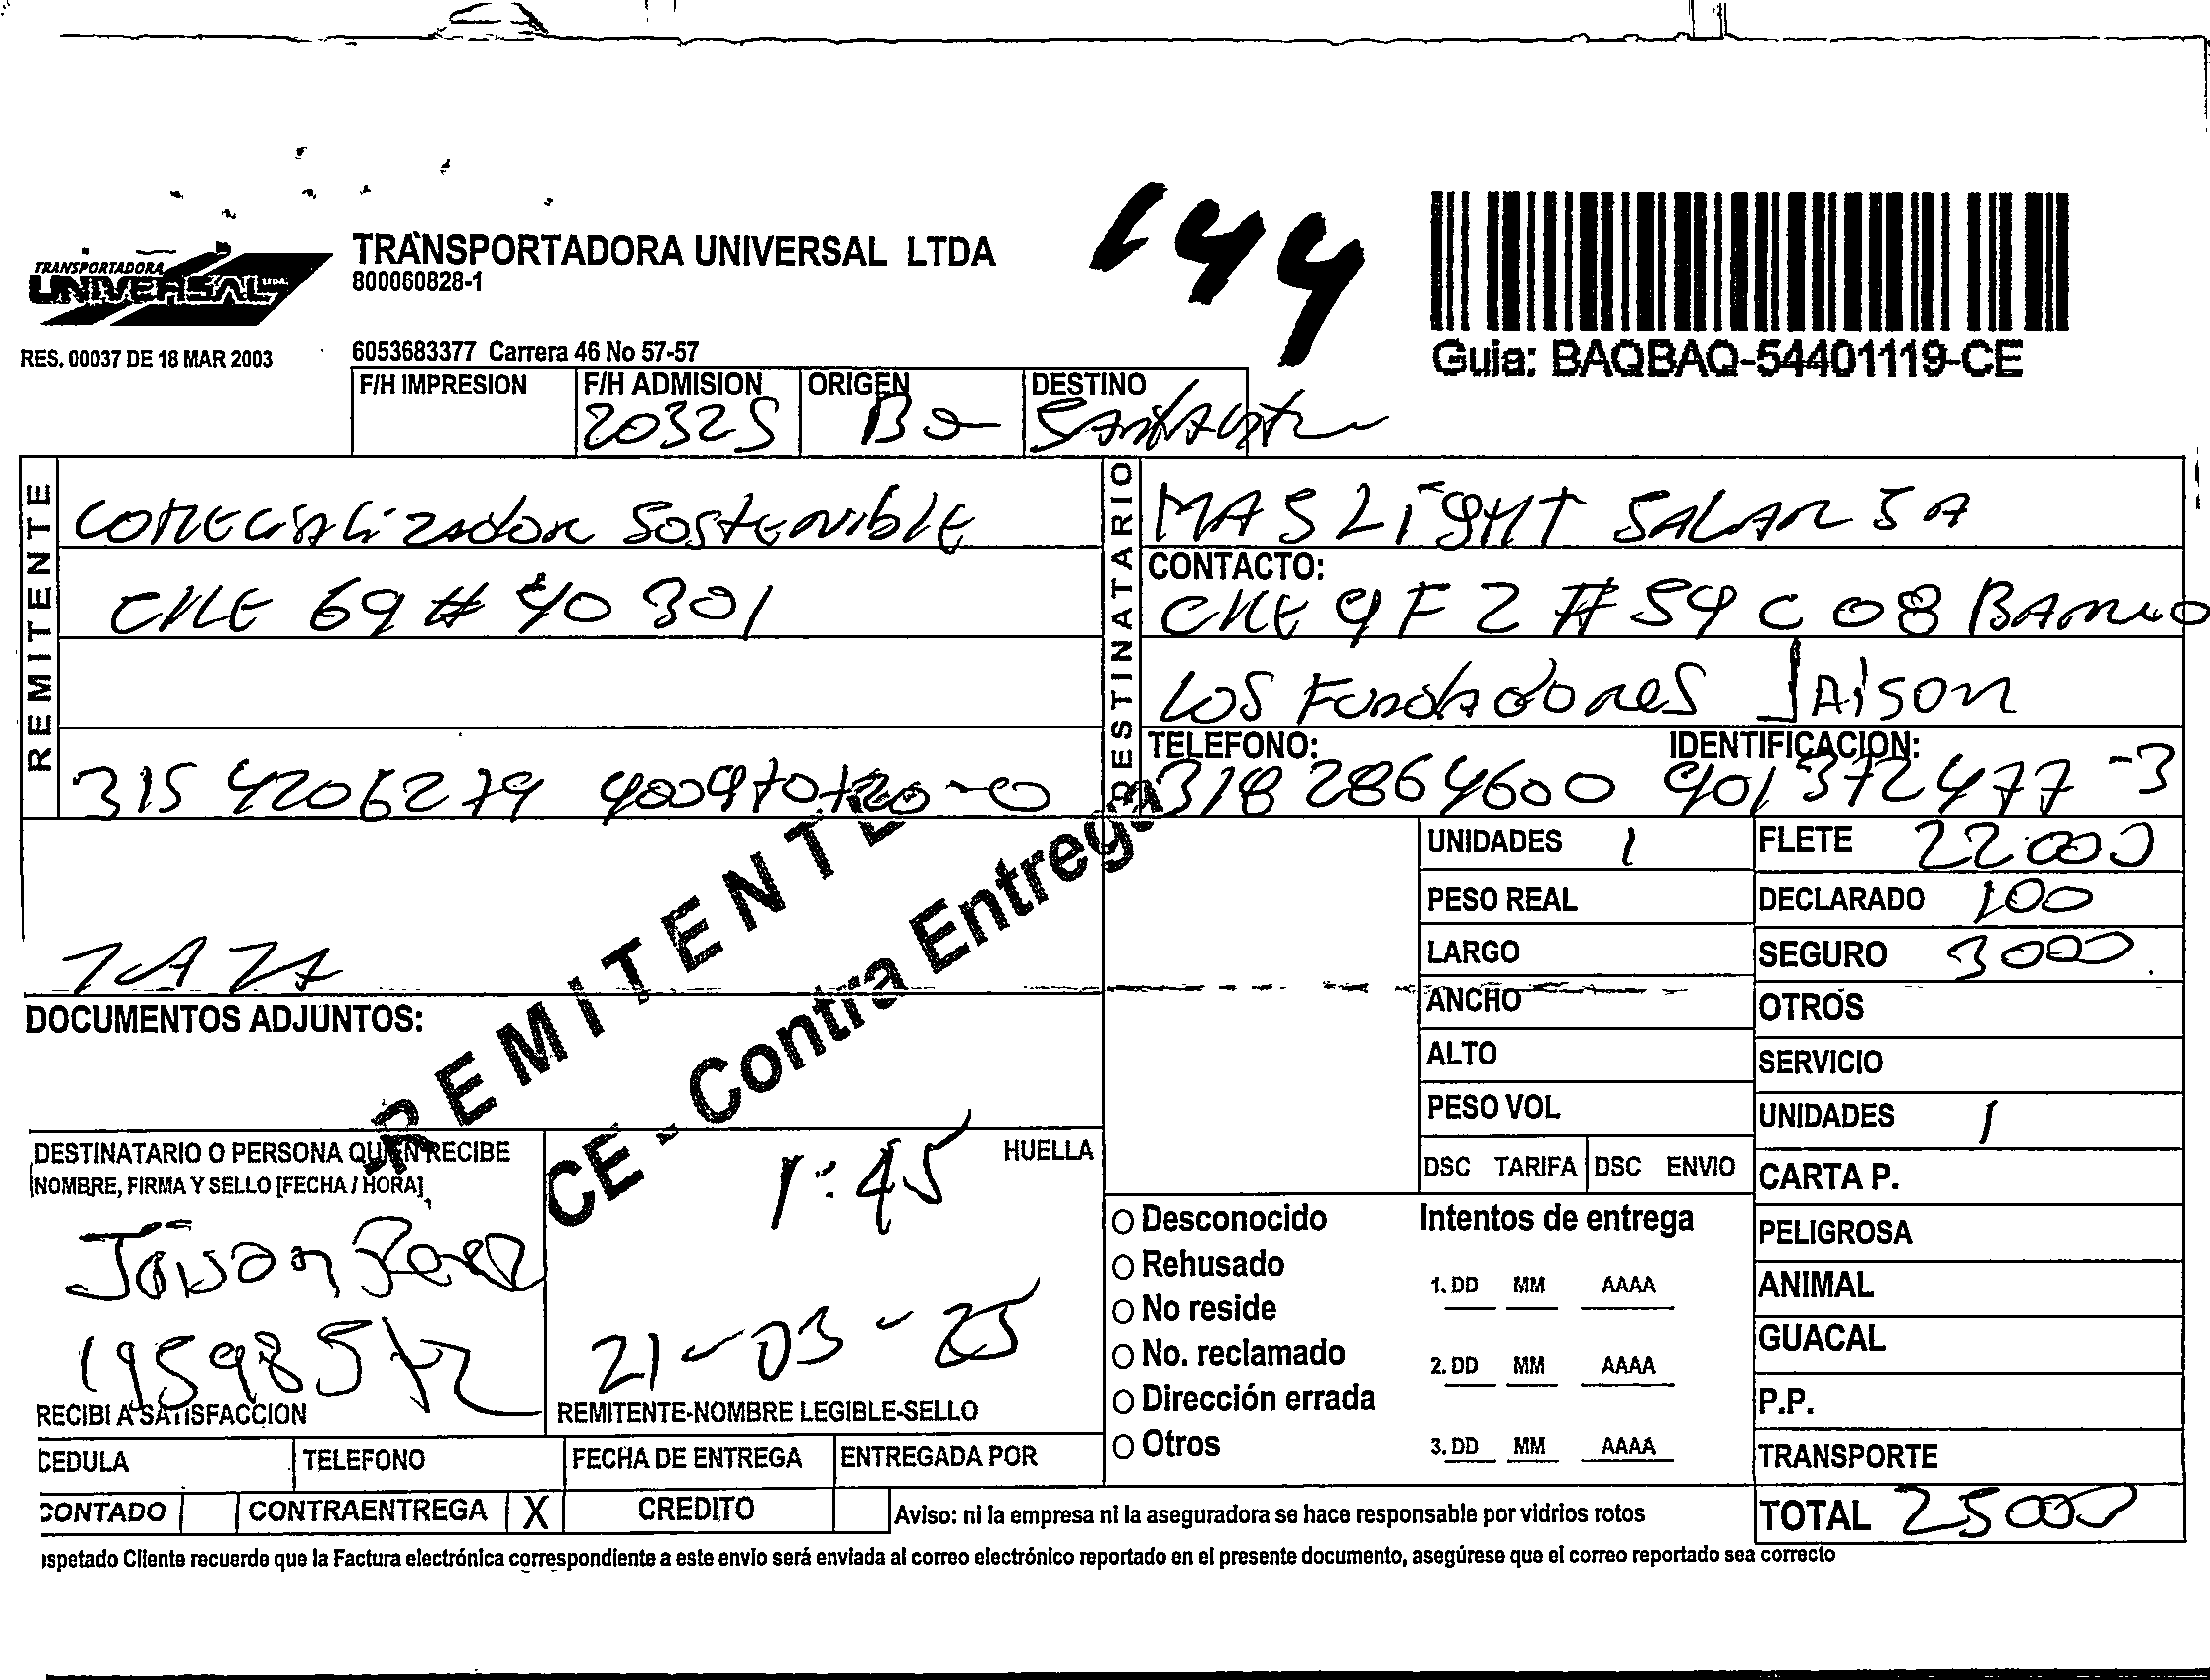 TRANSPORTADORA
UNIVERSAL LTDA.
RES. 00037 DE 18 MAR 2003
TRANSPORTADORA UNIVERSAL LTDA
800060828-1
6053683377 Carrera 46 No 57-57
144
Guia: BAQBAQ-54401119-CE
F/H IMPRESION
F/H ADMISION 20325
ORIGEN
DESTINO
REMITENTE
Sostenible
69 # 40 301
315 4206279 900970720-0
DESTINATARIO
MAS LIGHT SALAR SA
CONTACTO:
9F2 # 59 C 08 Barrio
Los Fundadores Jaison
TELEFONO: 318 2864600
IDENTIFICACION: 901372477-3
REMITENTE
CE - Contra Entrega
DOCUMENTOS ADJUNTOS:
UNIDADES 1
PESO REAL
LARGO
ANCHO
ALTO
PESO VOL
DSC TARIFA DSC ENVIO
FLETE 22000
DECLARADO 100
SEGURO 3000
OTROS
SERVICIO
UNIDADES 1
CARTA P.
PELIGROSA
ANIMAL
GUACAL
P.P.
TRANSPORTE
TOTAL 25000
DESTINATARIO O PERSONA QUIEN RECIBE
NOMBRE, FIRMA Y SELLO [FECHA / HORA]
Jaison
19598572
RECIBI A SATISFACCION
HUELLA
1:45
21-03-25
REMITENTE-NOMBRE LEGIBLE-SELLO
Desconocido
Rehusado
No reside
No. reclamado
Dirección errada
Otros
Intentos de entrega
1. DD MM AAAA
2. DD MM AAAA
3. DD MM AAAA
CEDULA
TELEFONO
FECHA DE ENTREGA
ENTREGADA POR
CONTADO
CONTRAENTREGA X
CREDITO
Aviso: ni la empresa ni la aseguradora se hace responsable por vidrios rotos
spetado Cliente recuerde que la Factura electrónica correspondiente a este envio será enviada al correo electrónico reportado en el presente documento, asegúrese que el correo reportado sea correcto